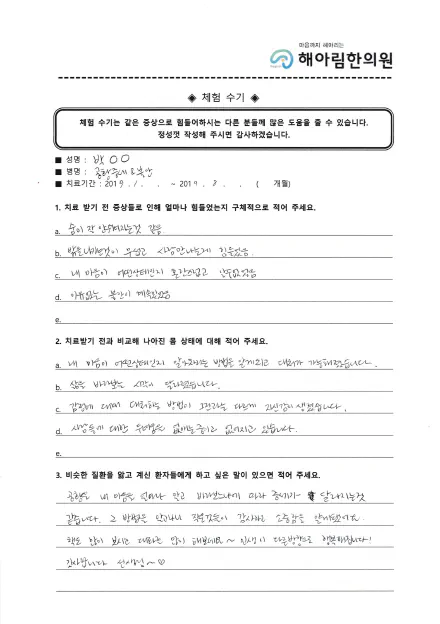 마음까지 헤아리는
해아림한의원
◈ 체험 수기 ◈
체험 수기는 같은 증상으로 힘들어하시는 다른 분들께 많은 도움을 줄 수 있습니다.
정성껏 작성해 주시면 감사하겠습니다.
■ 성명 : 박OO
■ 병명 : 공황장애 & 불안
■ 치료기간 : 2019. 1. . ~ 2019. 8. . ( 개월)
1. 치료 받기 전 증상들로 인해 얼마나 힘들었는지 구체적으로 적어 주세요.
a. 숨이 잘 안쉬어지는것 같음
b. 밖을 나가는것이 무섭고 사람만나는게 힘들었음.
c. 내 마음이 어떤상태인지 혼란스럽고
d. 이유없는 불안이 계속되었음
e.
2. 치료받기 전과 비교해 나아진 몸 상태에 대해 적어 주세요.
a. 내 마음이 어떤상태인지 알아차리는 방법을 알게되고 대화가 가능해졌습니다.
b. 삶을 바라보는 시각이 달라졌습니다.
c. 감정에 대해 대화하는 방법이 자신감이 생겼습니다.
d. 사람들에 대한 두려움은 없어지고 있습니다.
e.
3. 비슷한 질환을 앓고 계신 환자들에게 하고 싶은 말이 있으면 적어 주세요.
공황도 내 마음을 얼마나 알고 바라보느냐에 따라 증세가 달라지는것
같습니다. 그 방법을 알고나니 작은것들이 감사하고 소중함을 알게되었어요.
책도 많이 보시고 대화도 많이 해보세요~ 인생이 다른방향으로 행복해집니다!
감사합니다 선생님~♡